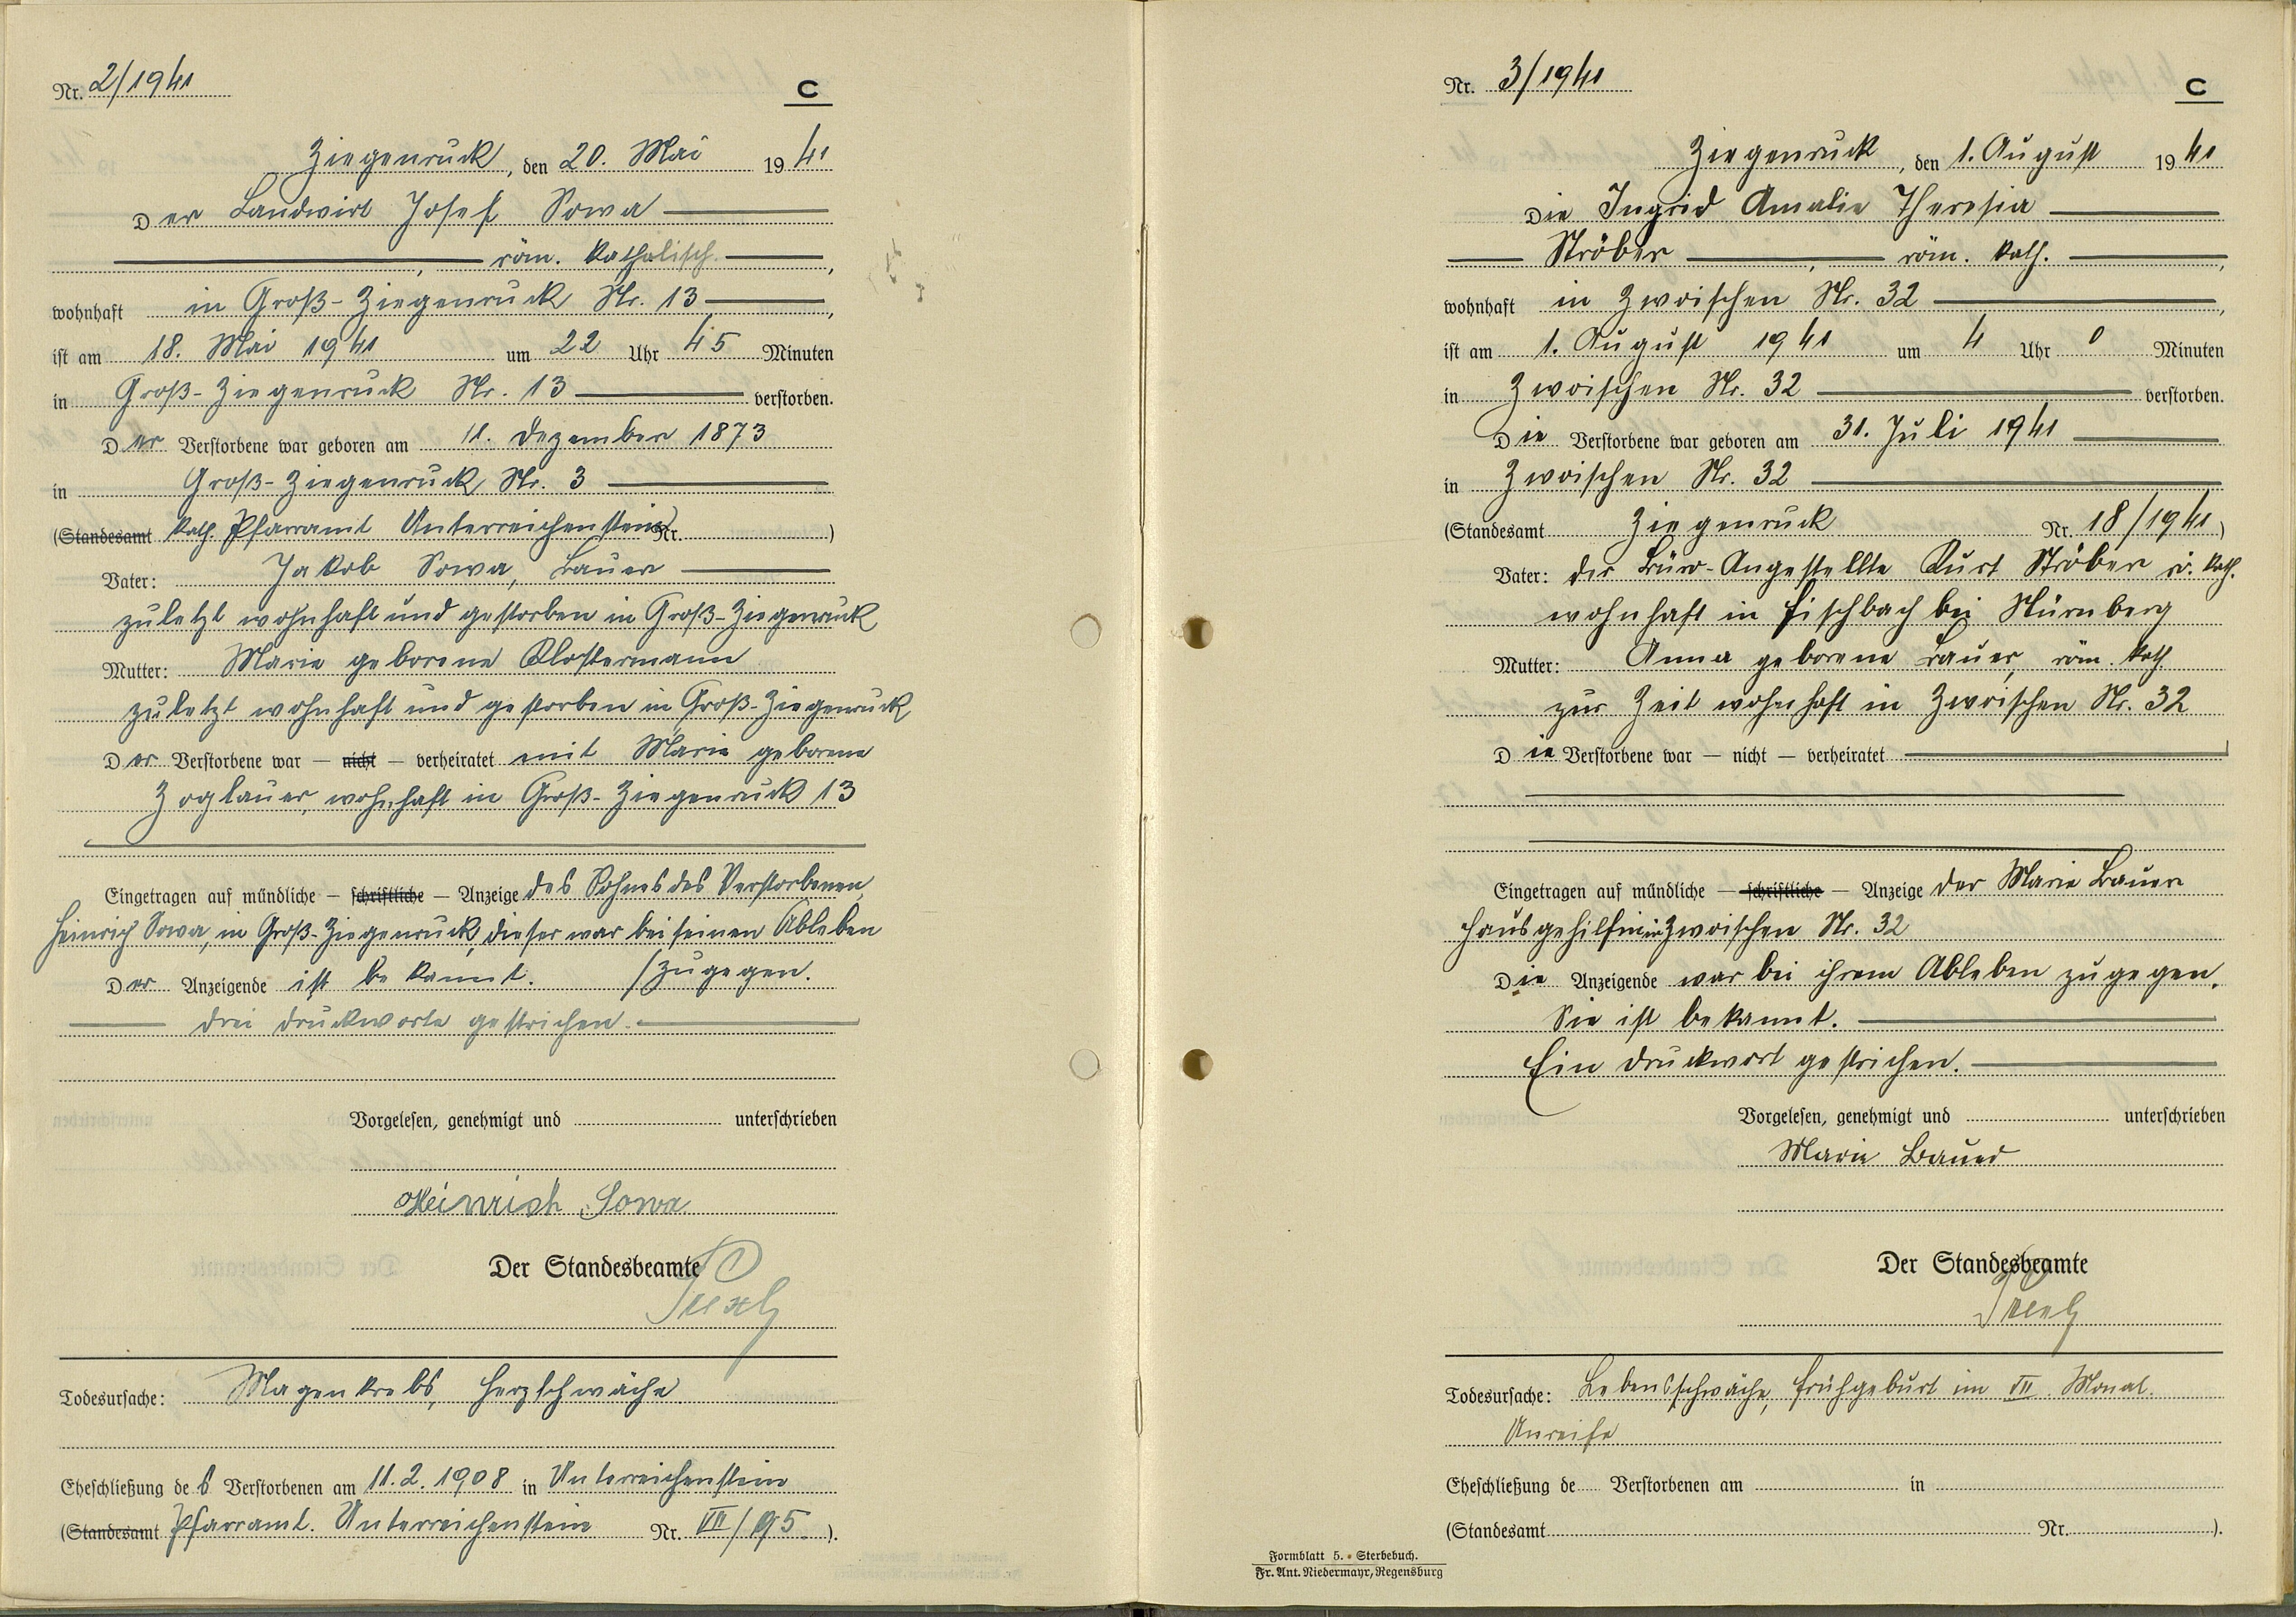 Nr. 2/1941
C
Ziegenruck, den 20. Mai 1941
Der Landwirt Josef Sowa
, röm. katholisch.,
wohnhaft in Groß-Ziegenruck Nr. 13,
ist am 18. Mai 1941 um 22 Uhr 45 Minuten
in Groß-Ziegenruck Nr. 13 verstorben.
Der Verstorbene war geboren am 11. Dezember 1873
in Groß-Ziegenruck, Nr. 3
(Standesamt kath. Pfarramt Unterreichenstein Nr. )
Vater: Jakob Sowa, Bauer
zuletzt wohnhaft und gestorben in Groß-Ziegenruck
Mutter: Marie geborene Klostermann
zuletzt wohnhaft und gestorben in Groß-Ziegenruck
Der Verstorbene war — nicht — verheiratet mit Marie geborene
Zoglauer, wohnhaft in Groß-Ziegenruck 13
Eingetragen auf mündliche — schriftliche — Anzeige des Sohnes des Verstorbenen,
Heinrich Sowa, in Groß-Ziegenruck, dieser war bei seinen Ableben
Der Anzeigende ist bekannt. /zugegen.
drei Druckworte gestrichen.
Vorgelesen, genehmigt und unterschrieben
Heinrich Sowa
Der Standesbeamte
Todesursache: Magenkrebs, Herzschwäche.
Eheschließung des Verstorbenen am 11.2.1908 in Unterreichenstein
(Standesamt Pfarramt. Unterreichenstein Nr. VII/95.).
Nr. 3/1941
C
Ziegenruck, den 1. August 1941
Die Ingrid Amalie Theresia
Ströber, röm. kath.,
wohnhaft in Zwoischen Nr. 32,
ist am 1. August 1941 um 4 Uhr 0 Minuten
in Zwoischen Nr. 32 verstorben.
Die Verstorbene war geboren am 31. Juli 1941
in Zwoischen Nr. 32
(Standesamt Ziegenruck Nr. 18/1941)
Vater: der Büro-Angestellte Kurt Ströber rö. kath.
wohnhaft in Fischbach bei Nürnberg
Mutter: Anna geborene Bauer, röm. kath
zur Zeit wohnhaft in Zwoischen Nr. 32
Die Verstorbene war — nicht — verheiratet
Eingetragen auf mündliche — schriftliche — Anzeige der Marie Bauer
Hausgehilfin in Zwoischen Nr. 32
Die Anzeigende war bei ihrem Ableben zugegen.
Sie ist bekannt.
Ein Druckwort gestrichen.
Vorgelesen, genehmigt und unterschrieben
Marie Bauer
Der Standesbeamte
Todesursache: Lebensschwäche, Frühgeburt im VII. Monat.
Unreife
Eheschließung de Verstorbenen am in
(Standesamt Nr. ).
Formblatt 5. • Sterbebuch.
Fr. Ant. Niedermayr, Regensburg